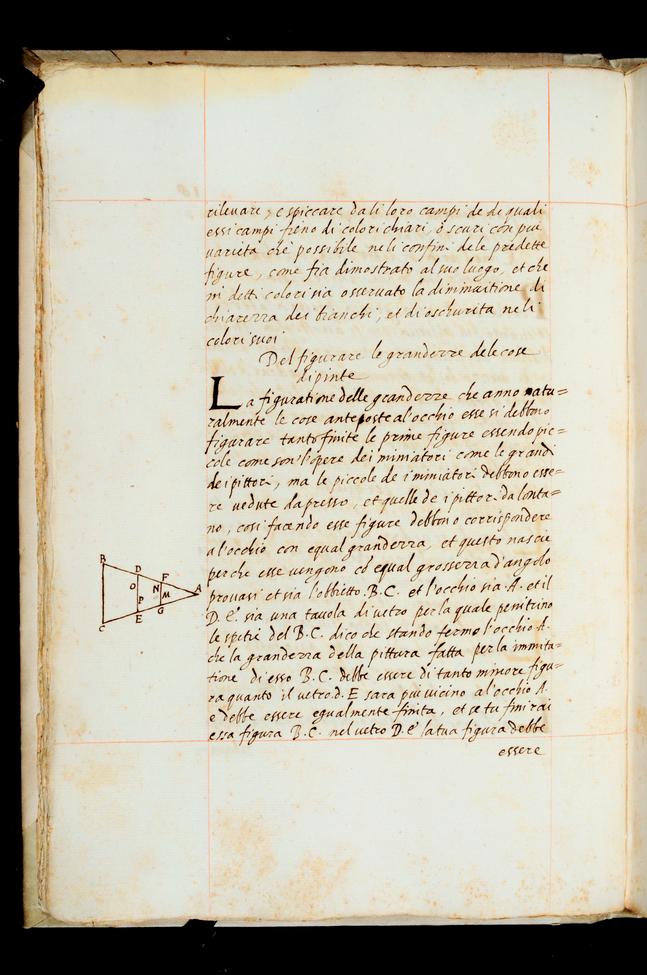 rileuare, e spiccare dali loro campi de de quali
essi campi fieno di colori chiari, o scuri con piu
uarieta che possibile neli confini dele predette
figure, come fia dimostrato al suo luogo, et che
ni detti colori sia osseruato la diminuitione di
chiarezza dei bianchi, et di oschurita neli
colori suoi
Del figurare le grandezze dele cose
dipinte
La figuratione delle grandezze che anno natu=
ralmente le cose anteposte al'occhio esse si debbono
figurare tanto finite le prime figure essendo pic=
cole come son l'opere dei miniatori come le grandi
dei pittori, ma le piccole de i miniatori debbono esse=
re uedute dapresso, et quelle de i pittori da lonta=
no, cosi facendo esse figure debbono corrispondere
a l'occhio con equal grandezza, et questo nascie
perche esse uengono co equal grosserra d'angolo
prouasi et sia l'obbietto. B.C. et l'occhio sia A. et il
D.E. sia una tauola di uetro per la quale penitrino
le spetie del B.C. dico che stando fermo l'occhio A.
che la grandezza della pittura fatta per la immita=
tione di esso B.C. debbe essere di tanto minore figu=
ra quanto il uetro d. E sara piu uicino al occhio A.
e debbe essere egualmente finita, et se tu finirai
essa figura B.C. nel uetro D.E la tua figura debbe
essere
B
D
F
O
N
A
P
M
G
C
E